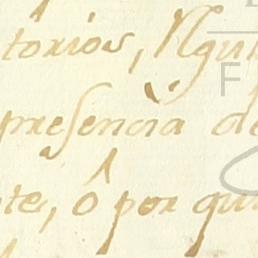 torios, Ngui
presencia de
te, ô por qu